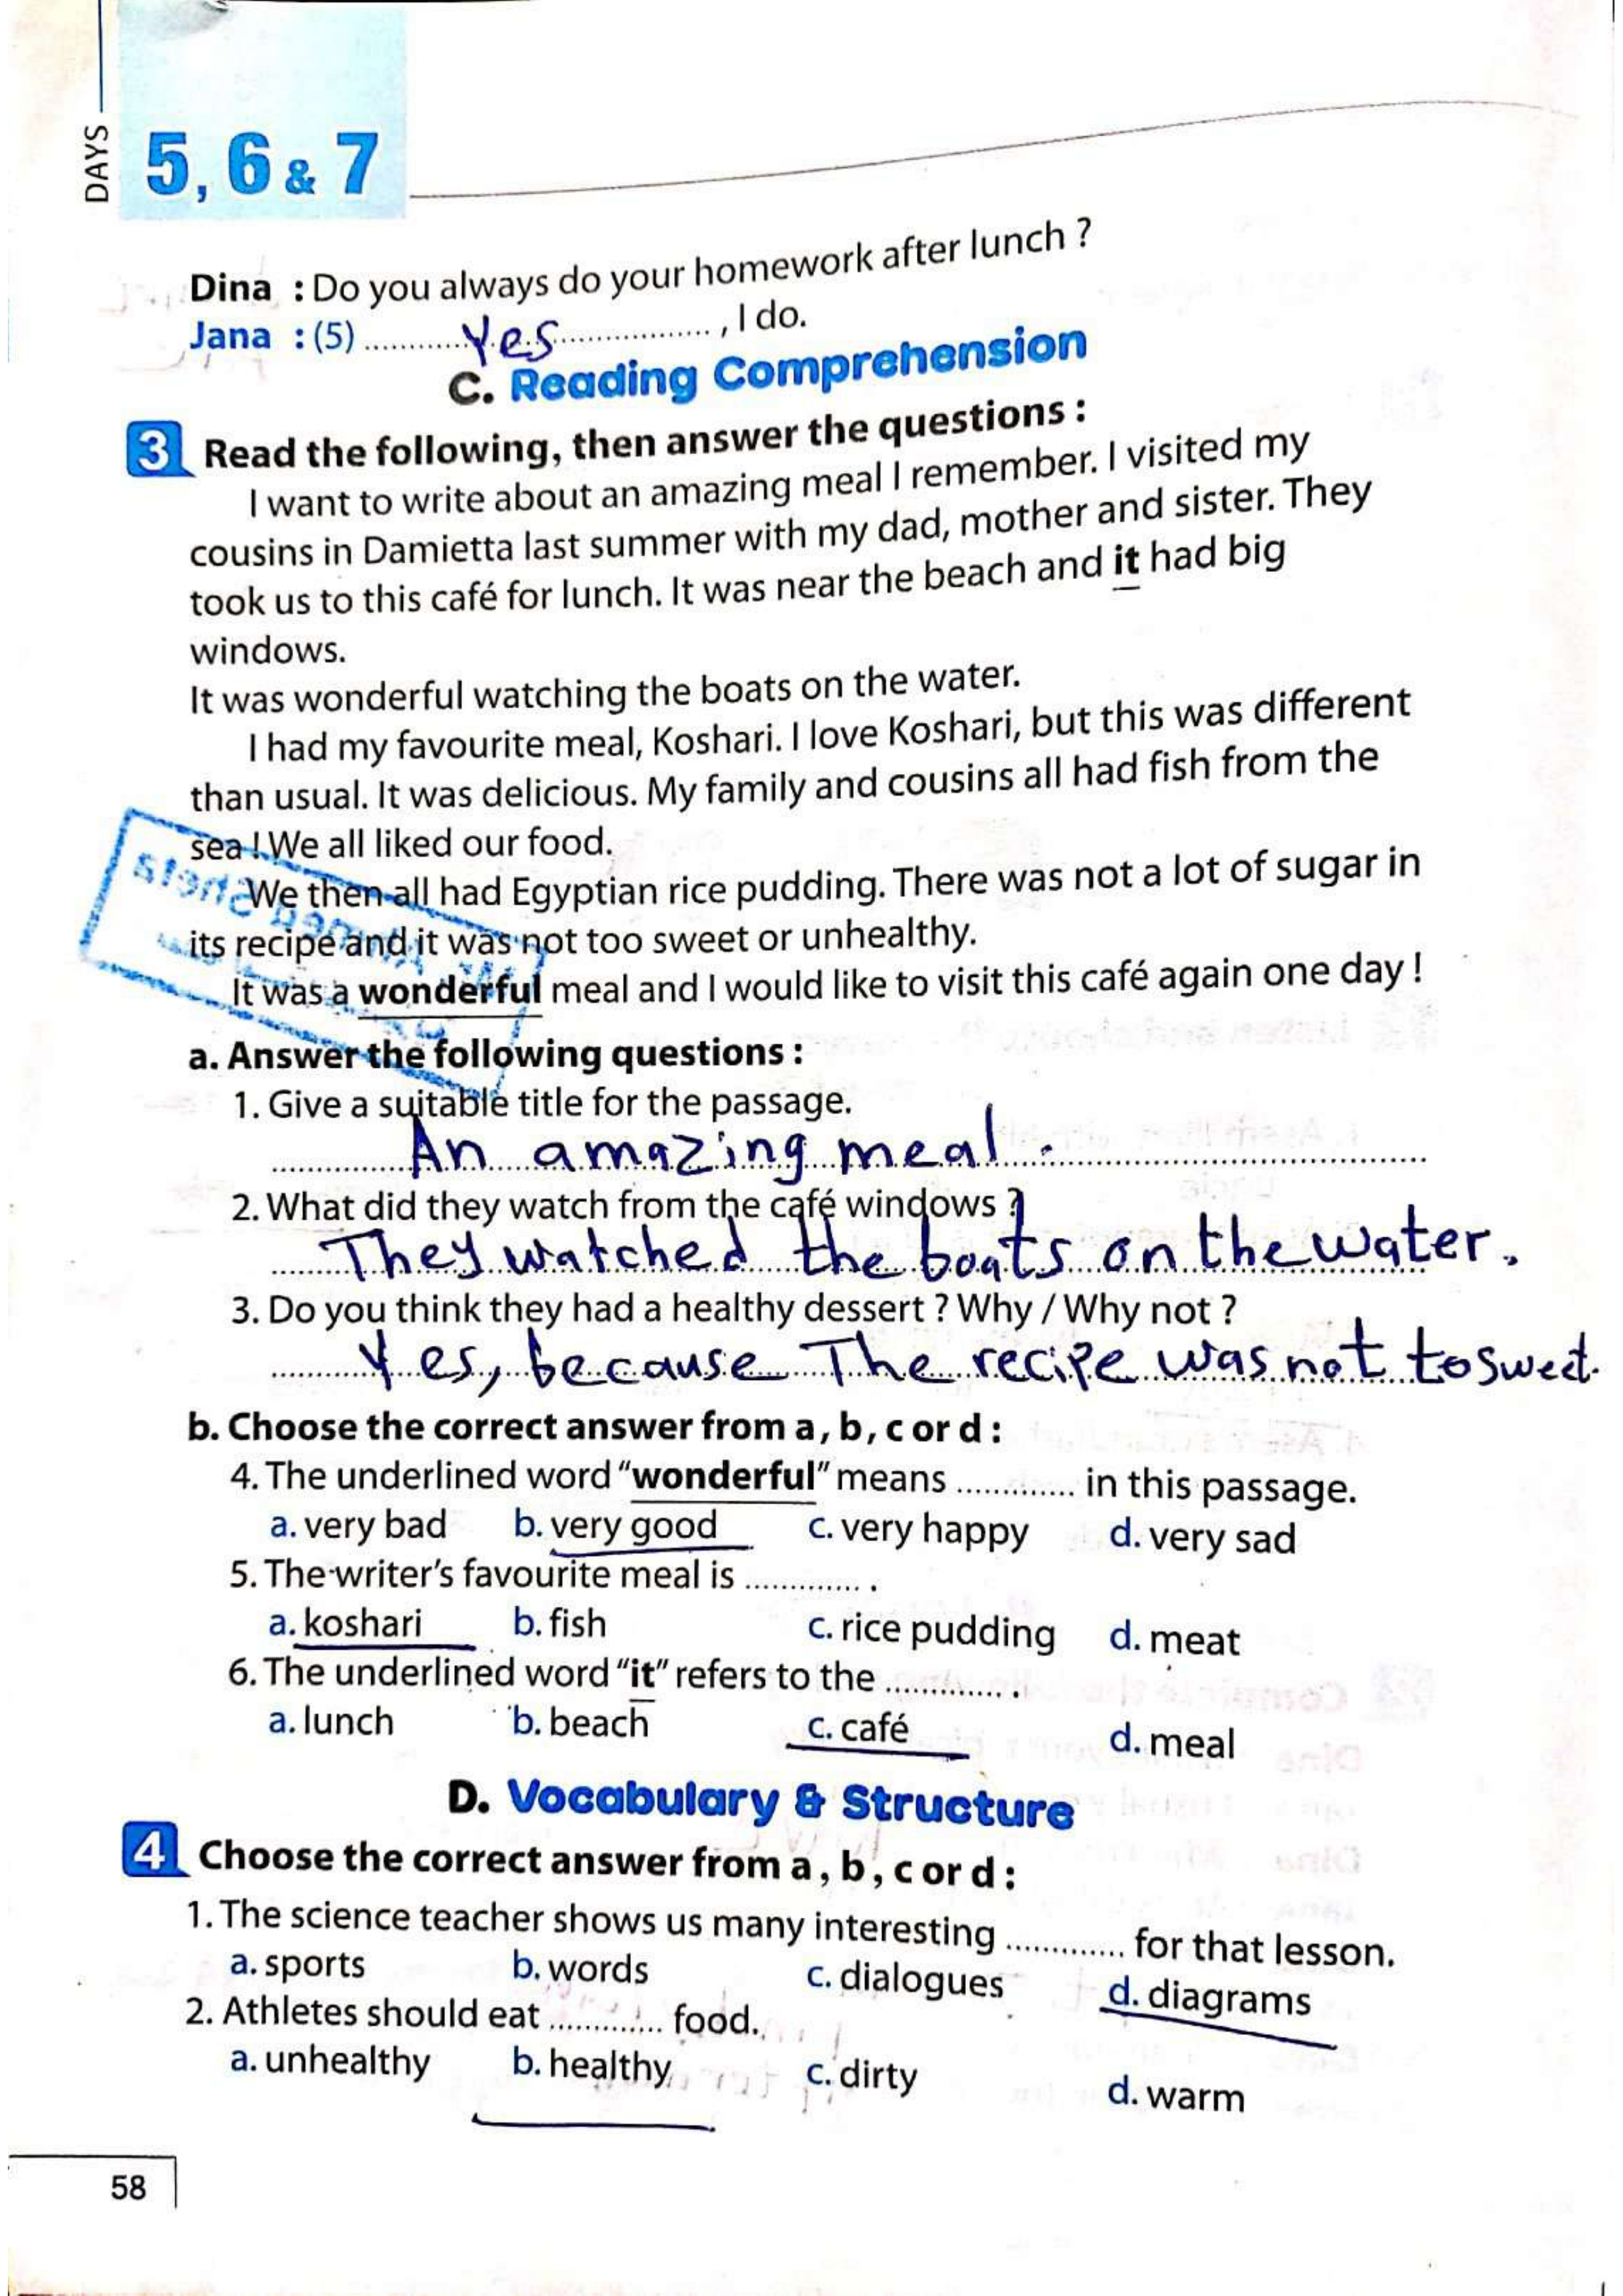 DAYS
5, 6 & 7
Dina : Do you always do your homework after lunch ?
Jana : (5) ............Yes................. , I do.
C. Reading Comprehension
3 Read the following, then answer the questions :
I want to write about an amazing meal I remember. I visited my
cousins in Damietta last summer with my dad, mother and sister. They
took us to this café for lunch. It was near the beach and it had big
windows.
It was wonderful watching the boats on the water.
I had my favourite meal, Koshari. I love Koshari, but this was different
than usual. It was delicious. My family and cousins all had fish from the
sea ! We all liked our food.
We then all had Egyptian rice pudding. There was not a lot of sugar in
its recipe and it was not too sweet or unhealthy.
It was a wonderful meal and I would like to visit this café again one day !
a. Answer the following questions :
1. Give a suitable title for the passage.
An amazing meal .
2. What did they watch from the café windows ?
They watched the boats on the water.
3. Do you think they had a healthy dessert ? Why / Why not ?
Yes, because The recipe was not to sweet.
b. Choose the correct answer from a, b, c or d :
4. The underlined word "wonderful" means ............. in this passage.
a. very bad b. very good c. very happy d. very sad
5. The writer's favourite meal is ............. .
a. koshari b. fish c. rice pudding d. meat
6. The underlined word "it" refers to the ............. .
a. lunch b. beach c. café d. meal
D. Vocabulary & Structure
4 Choose the correct answer from a, b, c or d :
1. The science teacher shows us many interesting ............. for that lesson.
a. sports b. words c. dialogues d. diagrams
2. Athletes should eat ............. food.
a. unhealthy b. healthy c. dirty d. warm
58